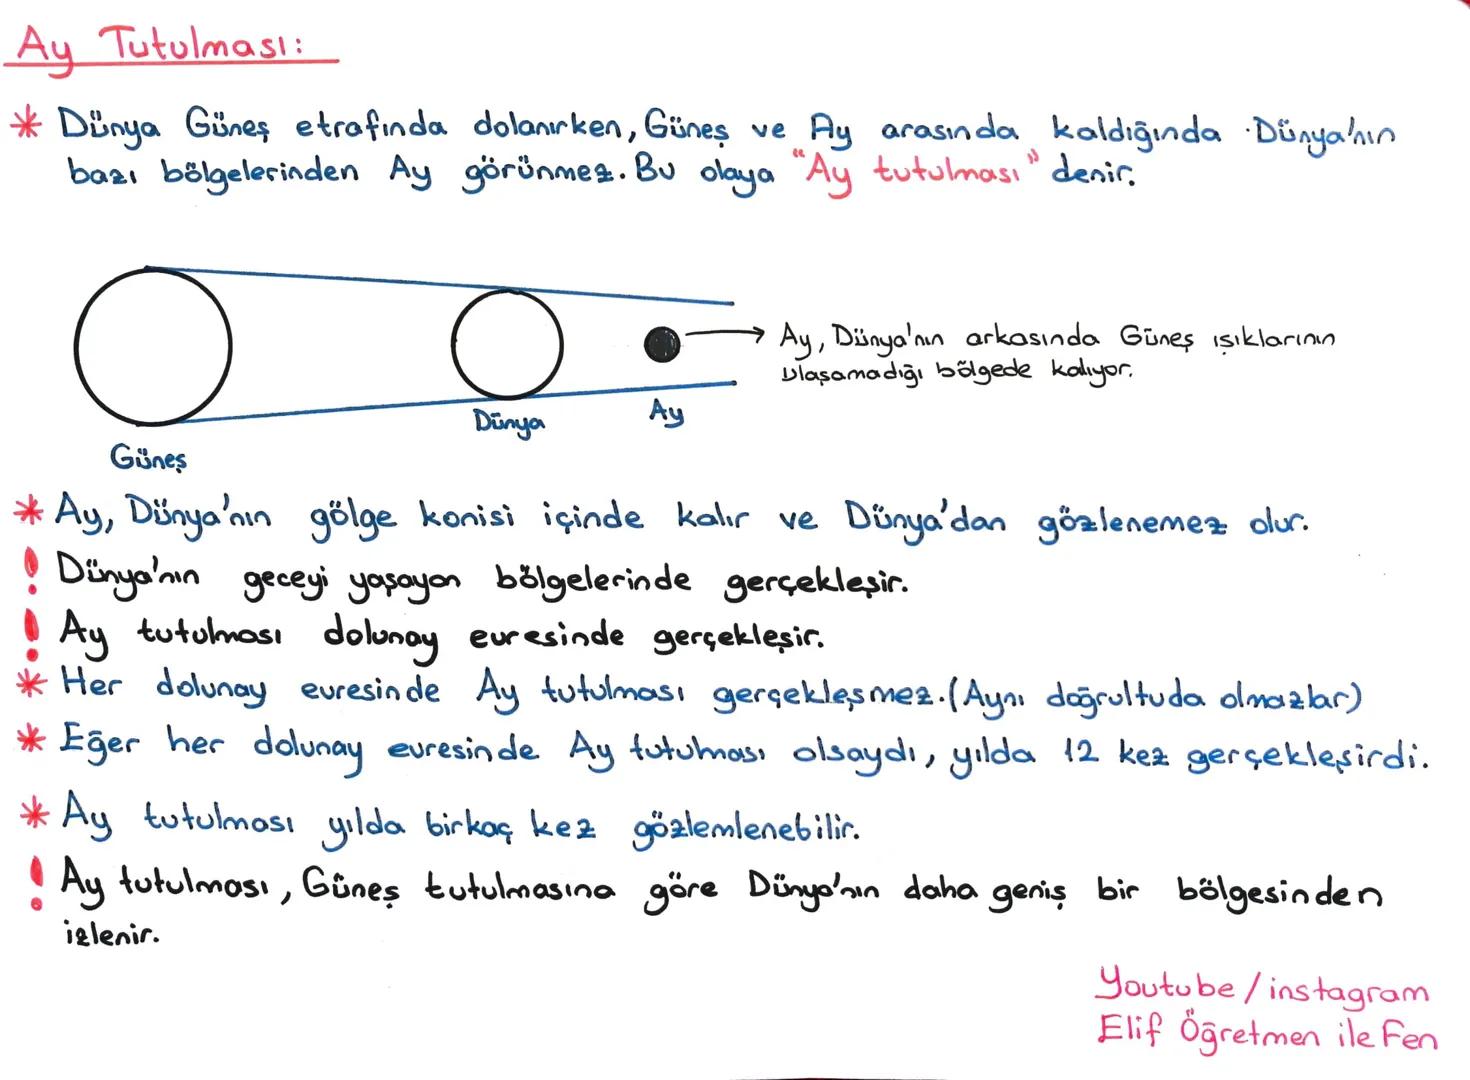 Ay Tutulması:
* Dünya Güneş etrafında dolanırken, Güneş ve Ay arasında kaldığında Dünya'nın
bazı bölgelerinden Ay görünmez. Bu olaya "Ay tutulması" denir.
Ay, Dünya'nın arkasında Güneş ışıklarının
ulaşamadığı bölgede kalıyor.
Güneş
Dünya
Ay
* Ay, Dünya'nın gölge konisi içinde kalır ve Dünya'dan gözlenemez olur.
! Dünya'nın geceyi yaşayan bölgelerinde gerçekleşir.
! Ay tutulması dolunay evresinde gerçekleşir.
* Her dolunay evresinde Ay tutulması gerçekleşmez. (Aynı doğrultuda olmazlar)
* Eğer her dolunay evresinde Ay tutulması olsaydı, yılda 12 kez gerçekleşirdi.
* Ay tutulması yılda birkaç kez gözlemlenebilir.
! Ay tutulması, Güneş tutulmasına göre Dünya'nın daha geniş bir bölgesinden
izlenir.
Youtube / instagram
Elif Öğretmen ile Fen